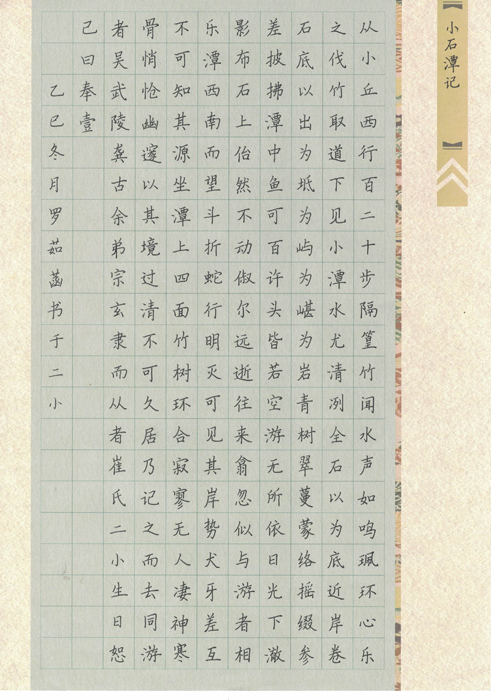 小石潭记
从小丘西行百二十步隔篁竹闻水声如鸣珮环心乐
之伐竹取道下见小潭水尤清冽全石以为底近岸卷
石底以出为坻为屿为嵁为岩青树翠蔓蒙络摇缀参
差披拂潭中鱼可百许头皆若空游无所依日光下澈
影布石上佁然不动俶尔远逝往来翕忽似与游者相
乐潭西南而望斗折蛇行明灭可见其岸势犬牙差互
不可知其源坐潭上四面竹树环合寂寥无人凄神寒
骨悄怆幽邃以其境过清不可久居乃记之而去同游
者吴武陵龚古余弟宗玄隶而从者崔氏二小生曰恕
己曰奉壹
乙巳冬月罗茹菡书于二小